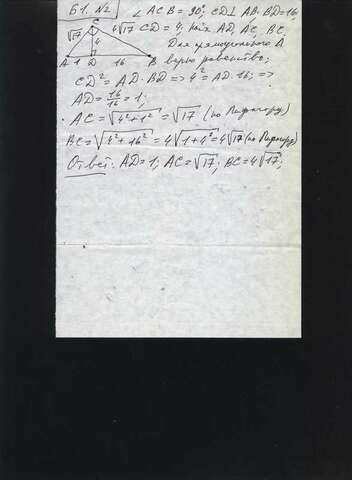 Б1. №2 ∠ACB = 90°, CD⊥AB. BD=16,
C √17 4√17 CD = 4, Найти AD, AC, BC.
4 Для прямоугольного Δ
A 1 D 16 B верно равенство;
CD² = AD · BD => 4² = AD · 16; =>
AD = 16/16 = 1;
AC = √4²+1² = √17 (по Пифагору)
BC = √4²+16² = 4√1+4² = 4√17 (по Пифагору)
Ответ: AD=1; AC=√17; BC=4√17;